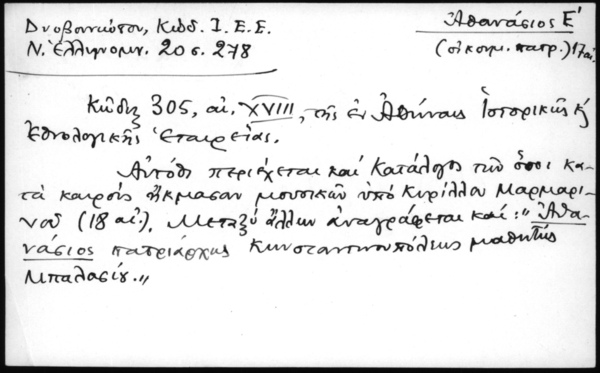 Δυοβουνιώτου, Κώδ. Ι. Ε. Ε.
Ν. Ἑλληνομν. 20 σ. 278
Ἀθανάσιος Ε'
(οἰκουμ. πατρ.) 17 αἰ.
Κῶδιξ 305, αἰ. XVIII, τῆς ἐν Ἀθήναις Ἱστορικῆς κ
Ἐθνολογικῆς Ἑταιρείας.
Αὐτόθι περιέχεται καὶ κατάλογος τῶν ὅσοι κα-
τὰ καιροὺς ἤκμασαν μουσικῶν ὑπὸ Κυρίλλου Μαρμαρι-
νοῦ (18 αἰ.). Μεταξὺ ἄλλων ἀναγράφεται καὶ: "Ἀθα-
νάσιος πατριάρχης Κωνσταντινουπόλεως μαθητὴς
Μπαλασίου."